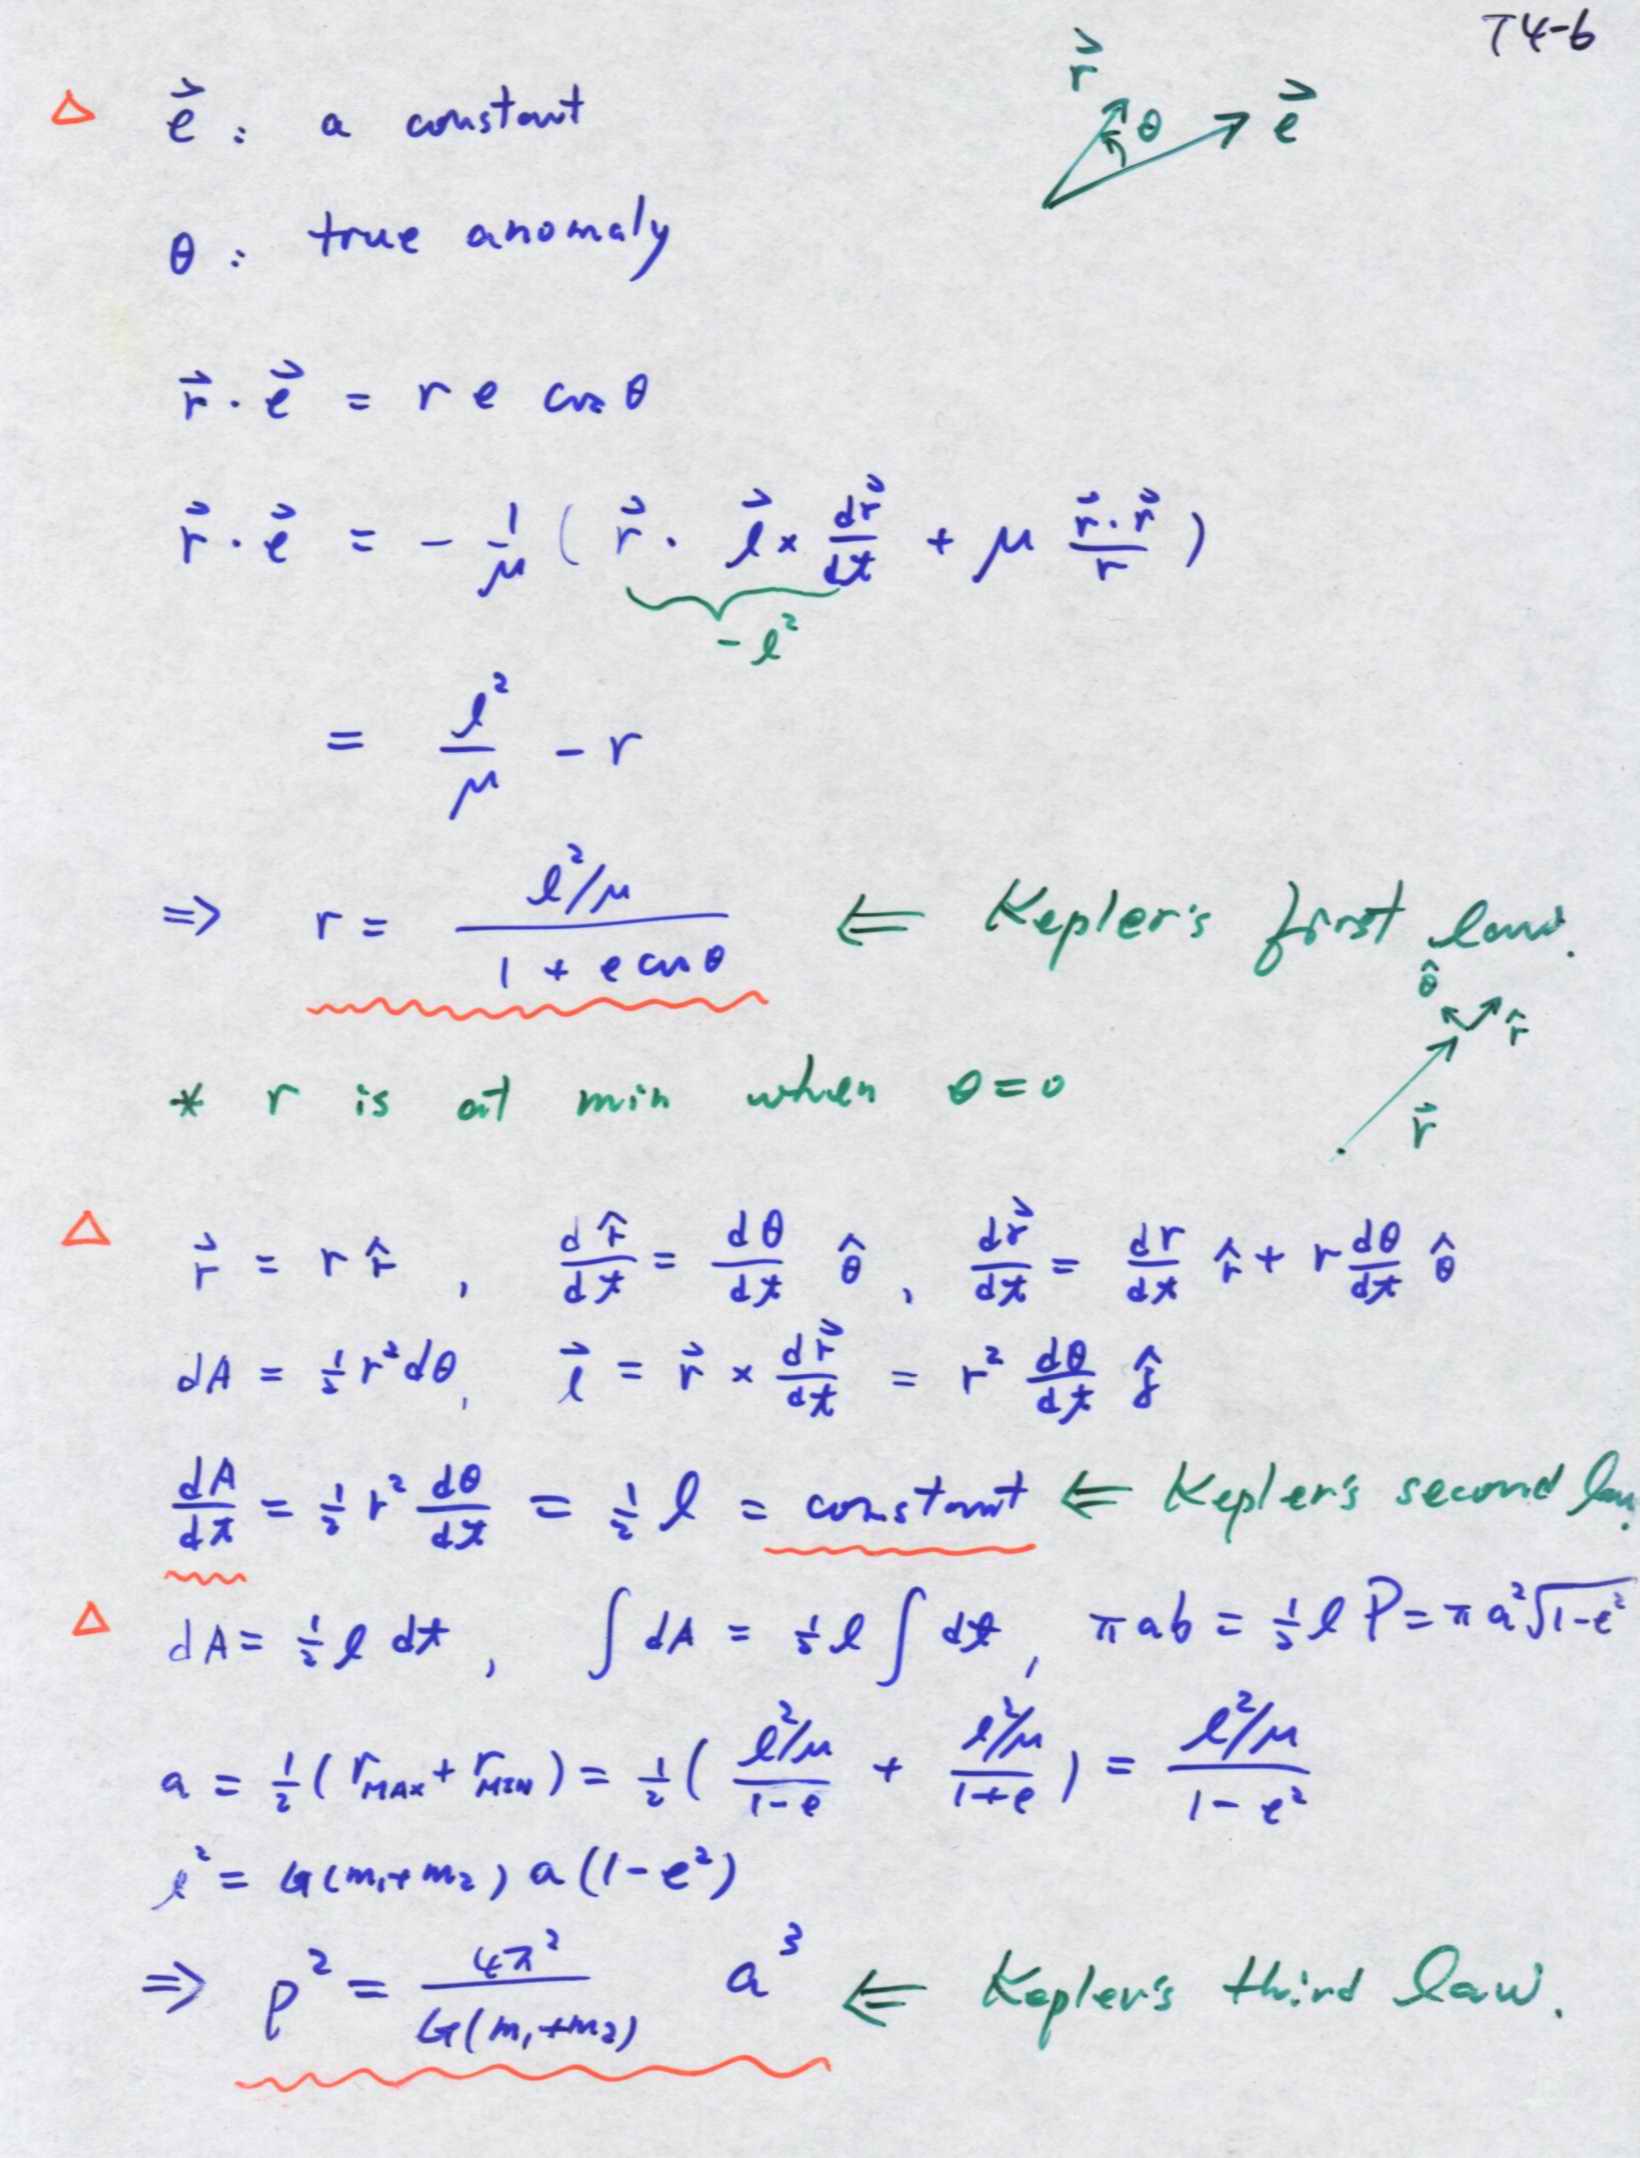 T4-6
△ \vec{e} : a constant
\vec{r} θ \vec{e}
θ : true anomaly
\vec{r} · \vec{e} = r e cos θ
\vec{r} · \vec{e} = - \frac{1}{μ} ( \vec{r} · \vec{l} × \frac{d\vec{r}}{dt} + μ \frac{\vec{r} · \vec{r}}{r} )
- l^2
= \frac{l^2}{μ} - r
⇒ r = \frac{l^2/μ}{1 + e cos θ} ⇐ Kepler's first law.
\hat{θ} \hat{r} \vec{r}
* r is at min when θ = 0
△ \vec{r} = r \hat{r} , \frac{d\hat{r}}{dt} = \frac{dθ}{dt} \hat{θ} , \frac{d\vec{r}}{dt} = \frac{dr}{dt} \hat{r} + r \frac{dθ}{dt} \hat{θ}
dA = \frac{1}{2} r^2 dθ, \vec{l} = \vec{r} × \frac{d\vec{r}}{dt} = r^2 \frac{dθ}{dt} \hat{z}
\frac{dA}{dt} = \frac{1}{2} r^2 \frac{dθ}{dt} = \frac{1}{2} l = constant ⇐ Kepler's second law.
△ dA = \frac{1}{2} l dt , ∫ dA = \frac{1}{2} l ∫ dt , π a b = \frac{1}{2} l P = π a^2 \sqrt{1-e^2}
a = \frac{1}{2} ( r_{MAX} + r_{MIN} ) = \frac{1}{2} ( \frac{l^2/μ}{1-e} + \frac{l^2/μ}{1+e} ) = \frac{l^2/μ}{1-e^2}
l^2 = G(m_1+m_2) a (1-e^2)
⇒ P^2 = \frac{4π^2}{G(m_1+m_2)} a^3 ⇐ Kepler's third law.